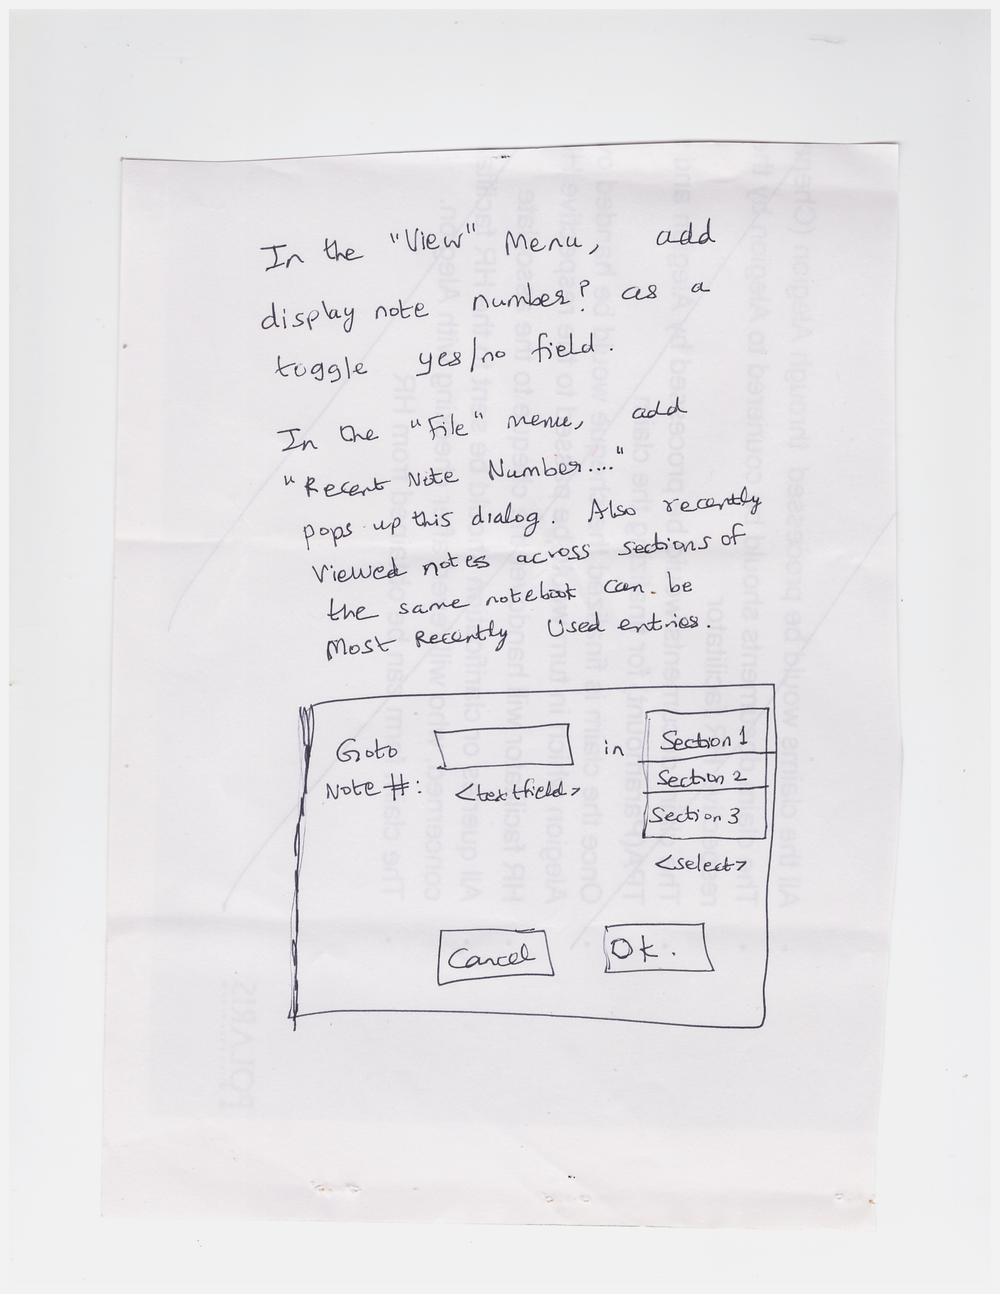 In the "View" Menu, add
display note number? as a
toggle yes/no field.
In the "File" menu, add
"Recent Note Number...."
pops up this dialog. Also recently
viewed notes across sections of
the same notebook can be
Most Recently Used entries.
Goto
Note #:
<textfield>
in
Section 1
Section 2
Section 3
<select>
Cancel
Ok.
POLARIS